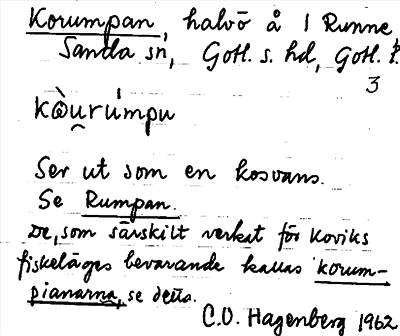 Korumpan, halvö å 1 Runne,
Sanda sn, Gotl. s. hd, Gotl. l.
3
kòurúmpu
Ser ut som en kosvans.
Se Rumpan.
De, som särskilt verkat för Koviks
fiskeläges bevarande kallas korum-
pianarna, se detta.
C.O. Hagenberg 1962